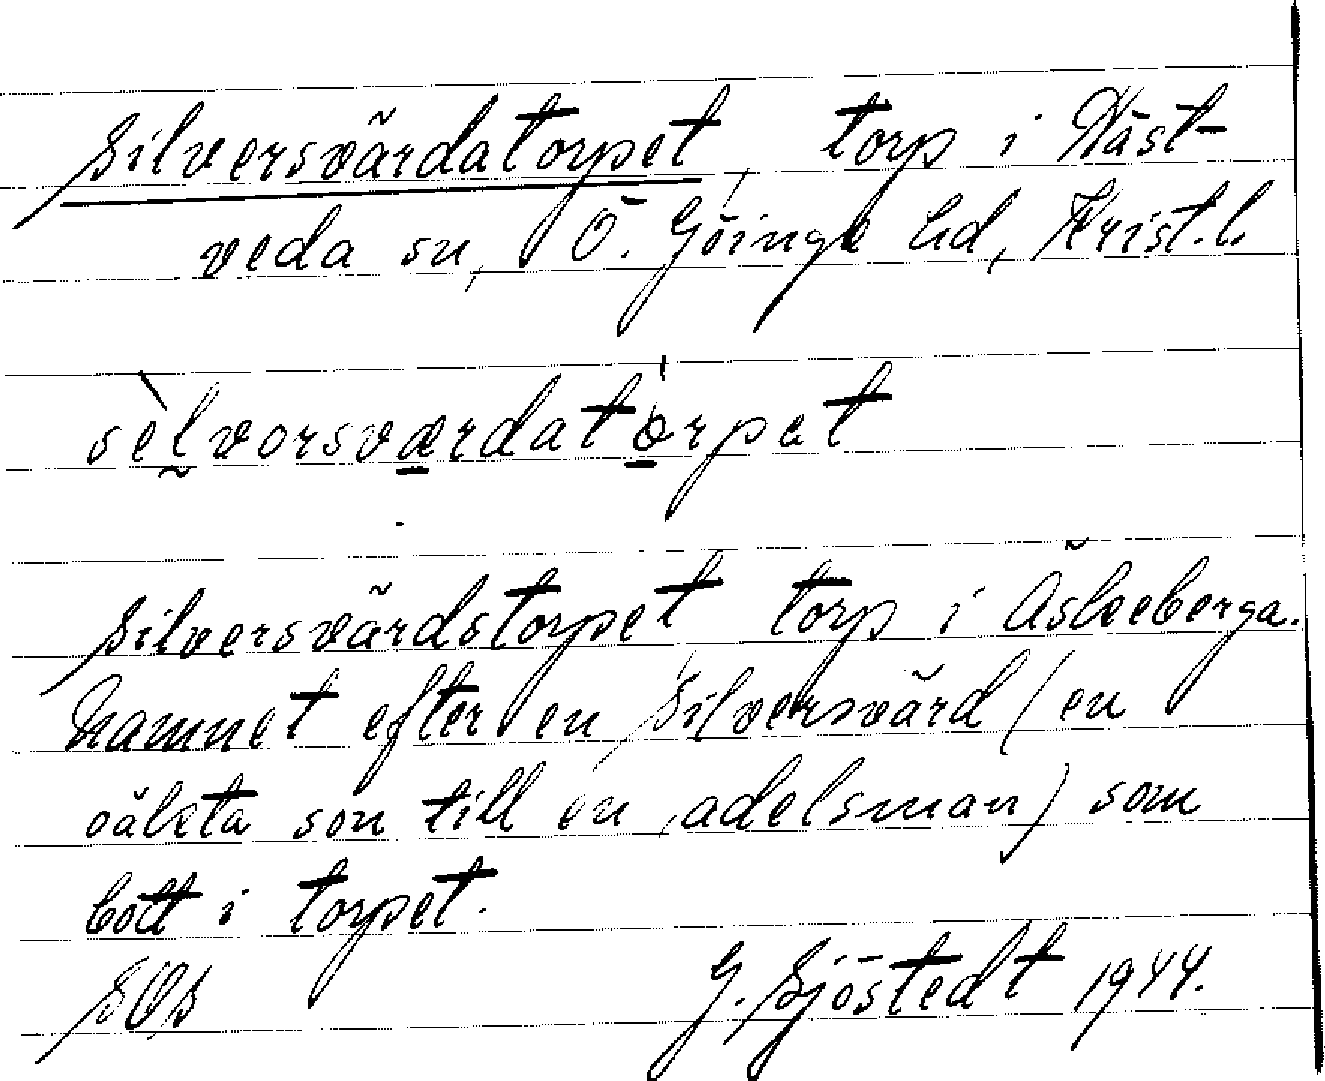 Silversvärdatorpet, torp i Näst-
veda sn, Ö. Göinge hd, Krist. l.
sèlvorsværdatòrpet
Silversvärdstorpet torp i Åskeberga.
Namnet efter en Silversvärd (en
oäkta son till en adelsman) som
bott i torpet.
G. Sjöstedt 1944.